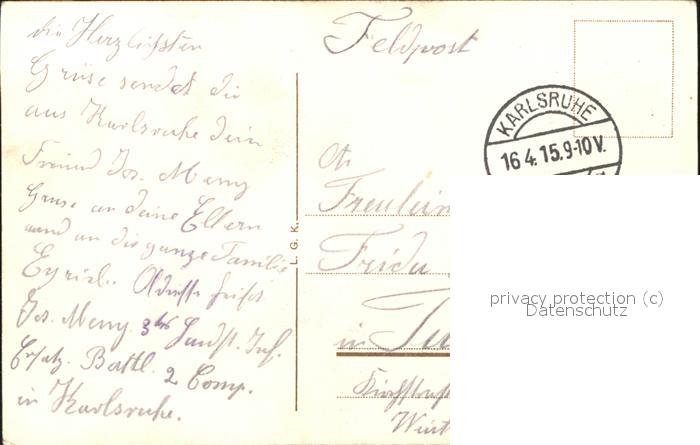 die Herzlichsten
Grüse sendet dir
aus Karlsruhe dein
Freund Jos. Meny
Gruse an deine Eltern
und an die ganze Familie
Adresse heist
Jos. Meny. 3tes Landst. Inf.
Ersatz. Battl. 2 Comp.
in Karlsruhe.
L. G. K.
Feldpost
KARLSRUHE
16 4. 15. 9-10 V.
An
Freulein
Frida
in
privacy protection (c)
Datenschutz